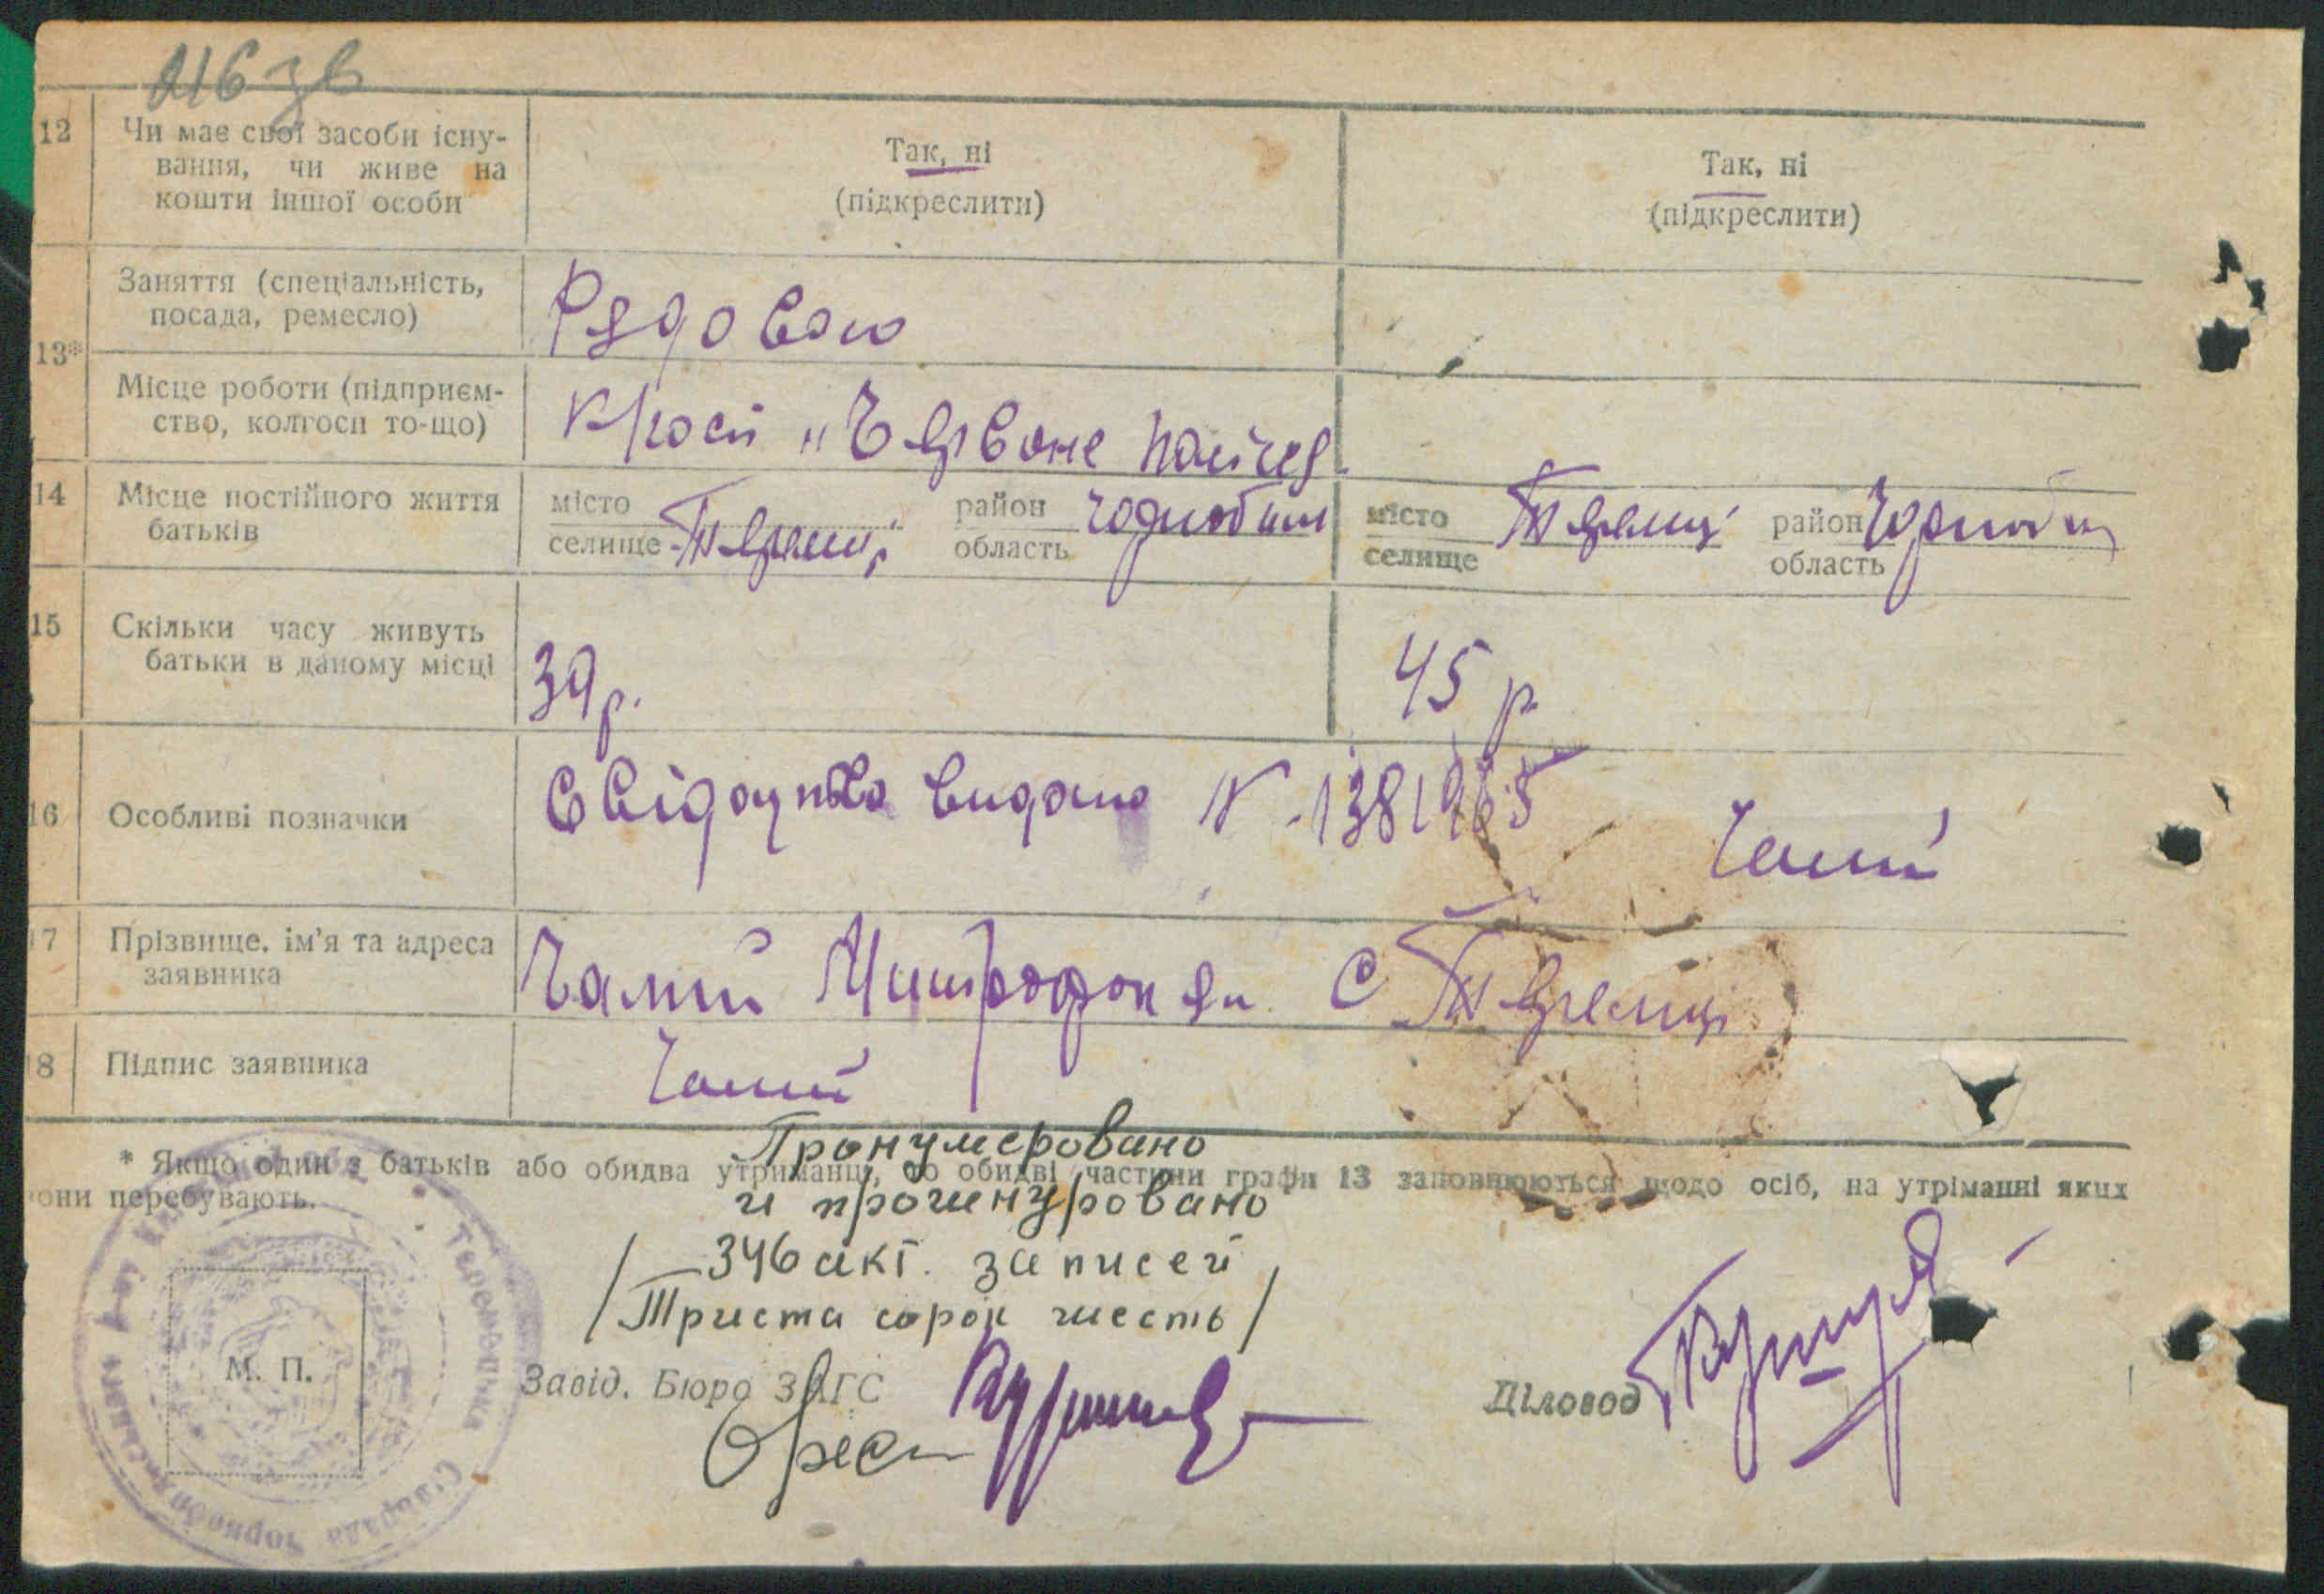 216 зв
12 Чи має свої засоби існу-
вання, чи живе на
кошти іншої особи
Так, ні
(підкреслити)
Так, ні
(підкреслити)
13*
Заняття (спеціальність,
посада, ремесло)
Рядового
Місце роботи (підприєм-
ство, колгосп то-що)
К/госп „Червоне
14 Місце постійного життя
батьків
місто
селище Теремці
район
область
місто
селище Теремці
район
область
15 Скільки часу живуть
батьки в даному місці
39 р.
45 р.
16 Особливі позначки
Свідоцтво видано N
Чалий
17 Прізвище, ім'я та адреса
заявника
Чалий Митрофан С Теремці
18 Підпис заявника
Чалий
* Якщо один з батьків або обидва утриманці, то обидві частини графи 13 заповнюються щодо осіб, на утріманні яких
вони перебувають.
Пронумеровано
и прошнуровано
346 акт. записей
/Триста сорок шесть/
М. П.
Завід. Бюро ЗАГС
Діловод
Теремцька Сільрада